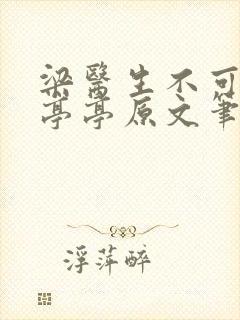 梁醫生不可
亭亭原文筆
浮萍醉